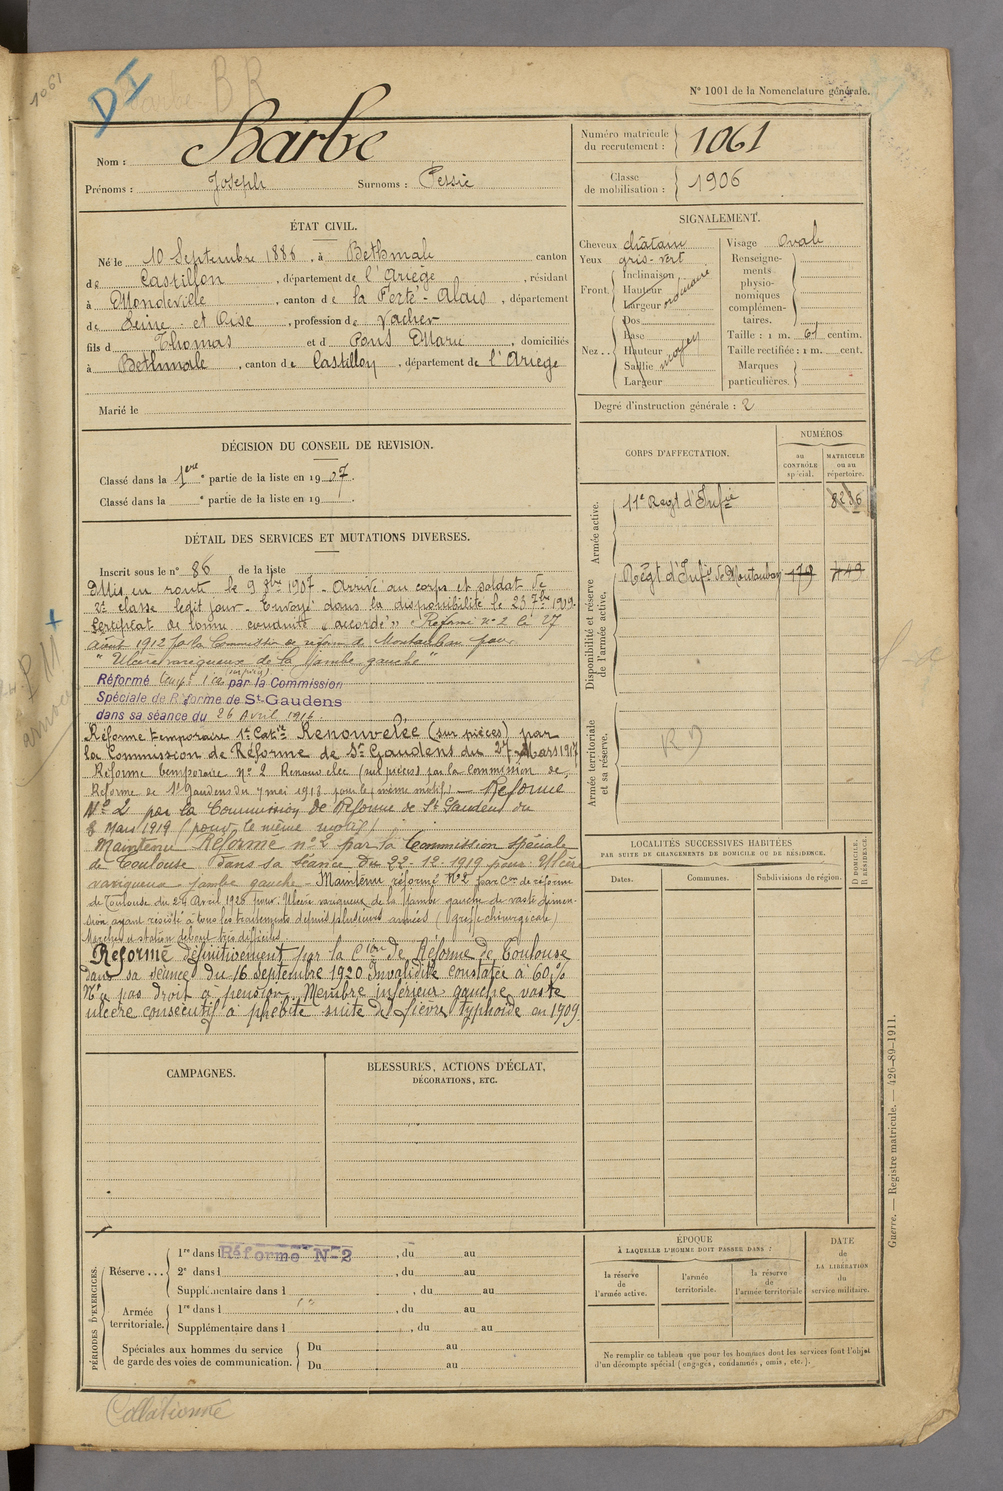 1061
D I
B R
N° 1001 de la Nomenclature générale.
Nom : Barbe
Prénoms : Joseph Surnoms : Pessic
Numéro matricule du recrutement : 1061
Classe de mobilisation : 1906
ÉTAT CIVIL.
Né le 10 Septembre 1886, à Bethmale canton
de Castillon, département de l'Ariège, résidant
à Mondeville, canton de la Ferté-Alais, département
de Seine et Oise, profession de Vacher
fils de Thomas et de Pons Marie, domiciliés
à Bethmale, canton de Castillon, département de l'Ariège
Marié le
SIGNALEMENT.
Cheveux châtain
Yeux gris-vert
Front Inclinaison Hauteur Largeur ordinaire
Nez Dos Base Hauteur Saillie Largeur moyen
Visage Ovale
Renseignements physionomiques complémentaires.
Taille : 1 m. 61 centim.
Taille rectifiée : 1 m. cent.
Marques particulières.
Degré d'instruction générale : 2
DÉCISION DU CONSEIL DE REVISION.
Classé dans la 1ère partie de la liste en 1907.
Classé dans la e partie de la liste en 19
DÉTAIL DES SERVICES ET MUTATIONS DIVERSES.
Inscrit sous le n° 86 de la liste
Mis en route le 9 8bre 1907 - Arrivé au corps et soldat de
2e classe ledit jour - Envoyé dans la disponibilité le 25 7bre 1909.
Certificat de bonne conduite "accordé" - Réformé n° 2 le 27
août 1912 par la Commission de réforme de Montauban pour
"Ulcère variqueux de la jambe gauche"
Réformé temp. 1 (sur pièces) par la Commission
Spéciale de Réforme de St-Gaudens
dans sa séance du 26 Avril 1916.
Réforme temporaire 1e Catie Renouvelée (sur pièces) par
la Commission de Réforme de St Gaudens du 27 Mars 1917
Réforme temporaire n° 2 Renouvelée (sur pièces) par la Commission de
Réforme de St Gaudens du 7 mai 1918 pour le (même motif) - Réformé
N° 2 par la Commission de Réforme de St Gaudens du
8 Mars 1919 (pour le même motif)
Maintenu Réformé n° 2 par la Commission spéciale
de Toulouse dans sa séance du 22-12-1919 pour : Ulcère
variqueux jambe gauche - Maintenu réformé N° 2 par Con de réforme
de Toulouse du 24 Avril 1920 pour : Ulcère variqueux de la jambe gauche de vaste dimen-
sion ayant résisté à tous les traitements depuis plusieurs années (Greffe chirurgicale)
Marche et station debout très difficiles
Réformé définitivement par la Cion de Réforme de Toulouse
dans sa séance du 16 Septembre 1920 Invalidité constatée à 60 %
N'a pas droit à pension. Membre inférieur gauche vaste
ulcère consécutif à phlébite suite de fièvre typhoïde en 1909.
CORPS D'AFFECTATION.
NUMÉROS
au CONTRÔLE spécial.
MATRICULE ou au répertoire.
Armée active.
11e Regt d'Infie 8286
Disponibilité et réserve de l'armée active.
Régt d'Infie de Montauban 179 749
Armée territoriale et sa réserve.
LOCALITÉS SUCCESSIVES HABITÉES
PAR SUITE DE CHANGEMENTS DE DOMICILE OU DE RÉSIDENCE.
Dates. Communes. Subdivisions de région.
D DOMICILE. R RÉSIDENCE.
CAMPAGNES.
BLESSURES, ACTIONS D'ÉCLAT,
DÉCORATIONS, ETC.
PÉRIODES D'EXERCICES.
Réserve...
1re dans l Réformé N° 2, du au
2e dans l , du au
Supplémentaire dans l , du au
Armée territoriale.
1re dans l , du au
Supplémentaire dans l , du au
Spéciales aux hommes du service de garde des voies de communication.
Du au
Du au
ÉPOQUE
À LAQUELLE L'HOMME DOIT PASSER DANS :
la réserve de l'armée active.
l'armée territoriale.
la réserve de l'armée territoriale
DATE de LA LIBÉRATION du service militaire.
Ne remplir ce tableau que pour les hommes dont les services font l'objet
d'un décompte spécial (engagés, condamnés, omis, etc.).
Guerre. — Registre matricule. — 426-89-1911.
Collationné